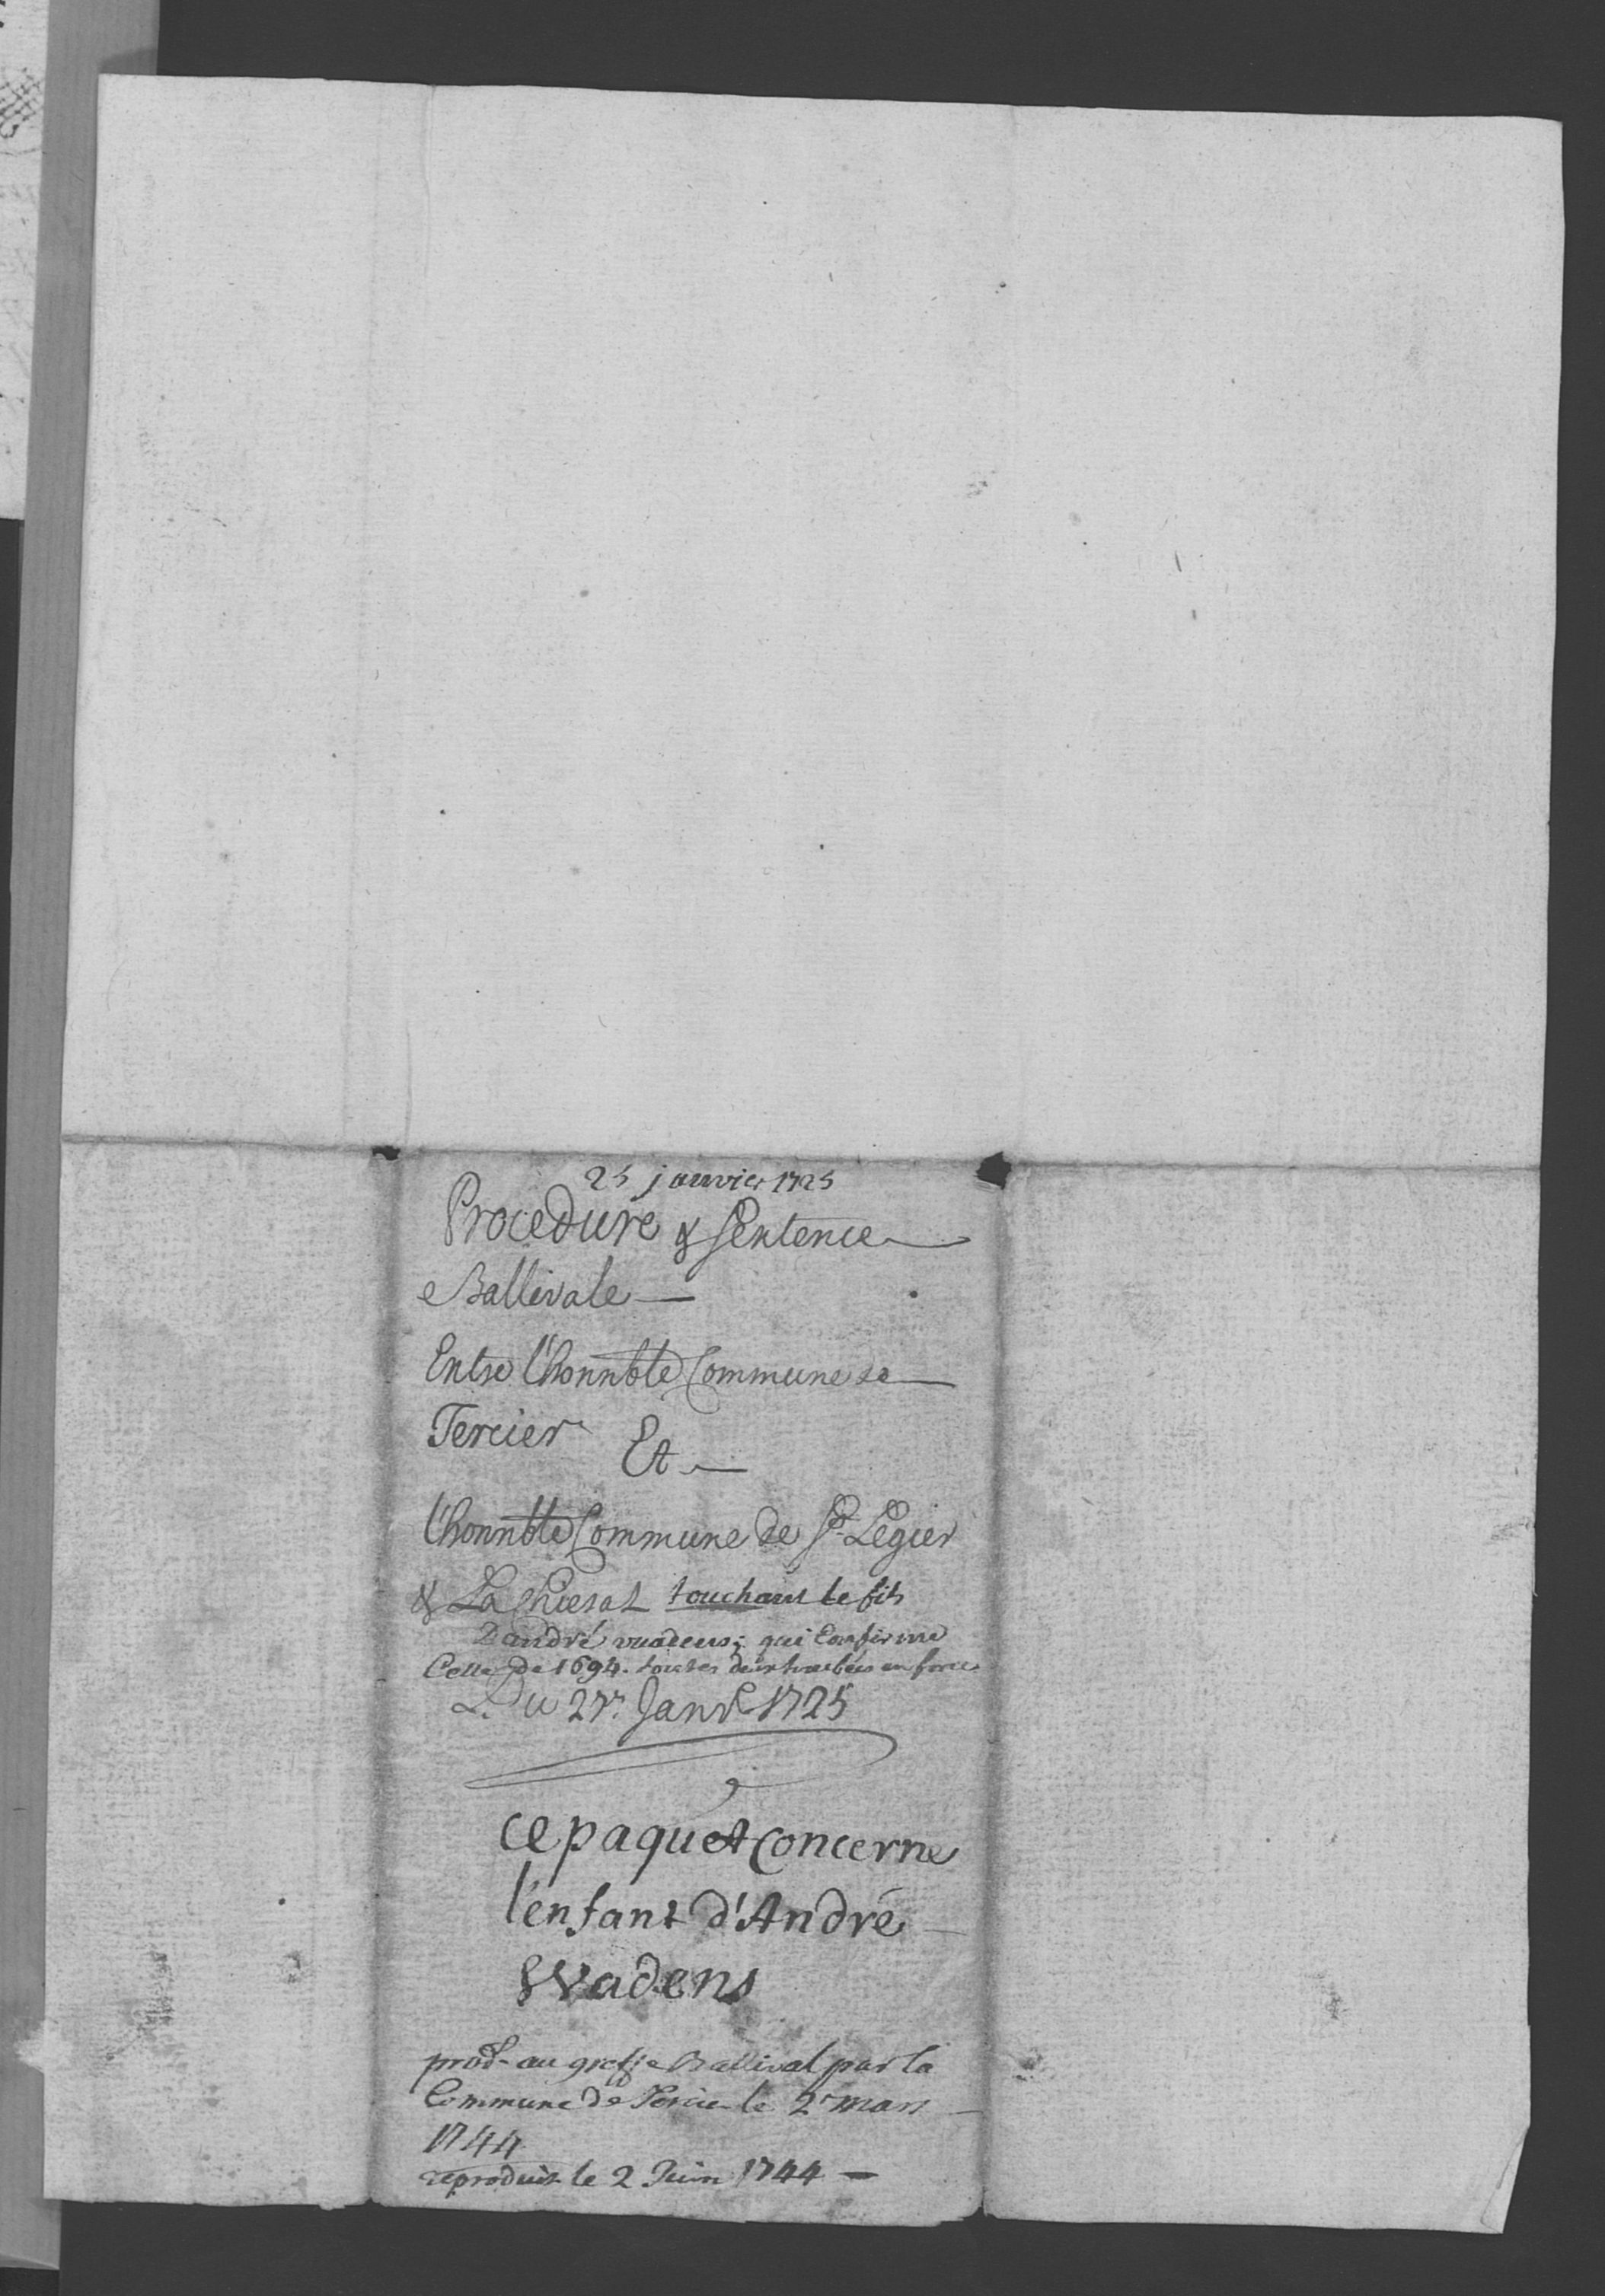 25 janvier 1725
Procedure & Sentence
Ballivale
Entre l'honnble Commune de
Tercier Et
l'honnble Commune de St Legier
& La Chiesat touchant le fils
d'andré vuadens; qui Confirme
Celle de 1694. toutes deux en force
Du 27e. Janvr 1725
ce paquet Concerne
l'enfant d'André
Wadens
prodt au greffe Ballival par la
Commune de Tercier le 2e mars
1744
reproduit le 2 Juin 1744